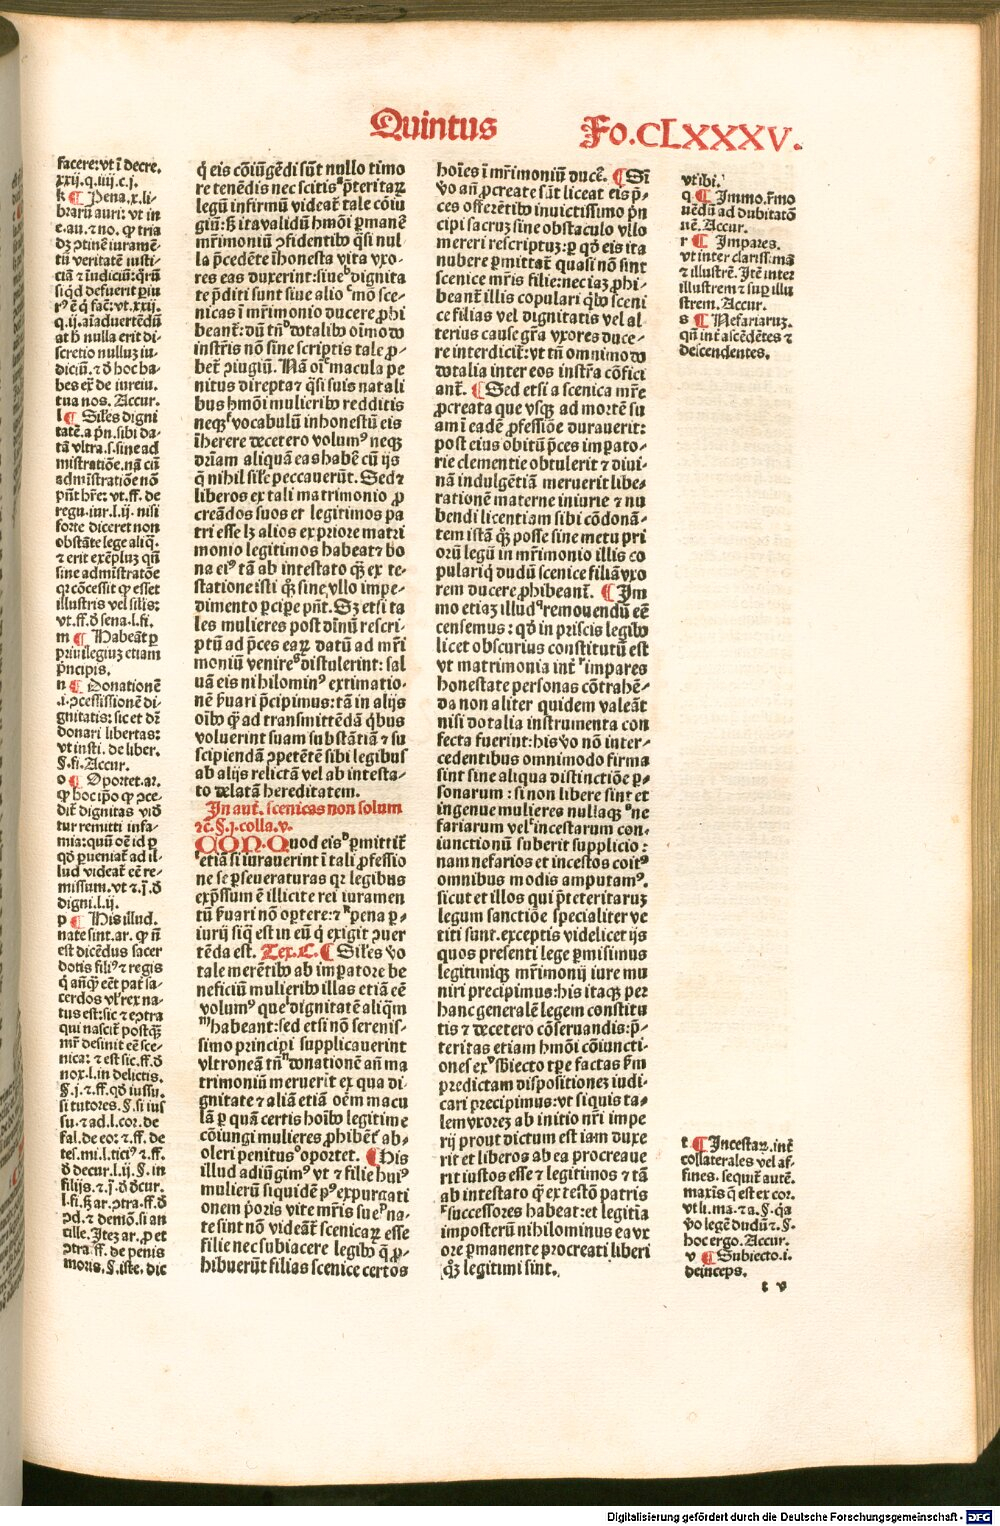 Quintus
Fo.CLXXXV.
facere: vt ī decre.
xxij.q.iiij.c.j.
k ¶ Pena.x.li-
brarū auri: vt in
e.au.⁊ no. ꝙ tria
dꝫ ꝯtinē iuramē-
tū veritatē iusti-
ciā ⁊ iudiciū: q̄rū
siqd̄ defuerit ꝑiu
rꝰ ē q̄ fac̄: vt.xxij.
q.ij.aīaduertēdū
at h̄ nulla erit di-
scretio nulluꝫ iu-
diciū.⁊ đ hoc ha-
bes eꝝ̄ de iureiu.
tua nos. Accur.
l ¶ Sil̄es digni
tatē.a pn̄.sibi da-
tā vltra.s.sine ad
mistratiōe.nā cū
admistratiōe nō
pn̄t hr̄e: vt.ff.de
regu.iur.l.ij. nisi
forte diceret non
obstāte lege aliq̄.
⁊ erit exēpluꝫ qn̄
sine admīstratōe
qꝛ cōcessit ꝙ esset
illustris vel sil̄is:
vt.ff.đ sena.l.fi.
m ¶ Habeāt ꝑ
priuilegiuꝫ etiam
pͥncipis.
n ¶ Donationē
.i.ꝯcessionē di-
gnitatis: sic et dr̄
donari libertas:
vt insti. de liber.
§.fi. Accur.
o ¶ Oportet.ar.
ꝙ hoc ip̄o ꝙ ꝯce-
dit̄ dignitas vid̄
tur remitti infa-
mia: quū oē id ꝑ
qd̄ ꝑueniat̄ ad il-
lud videat̄ eē re-
missum. vt ⁊.j.đ
digni.l.ij.
p ¶ His illud.
nate sint.ar. ꝙ nō
est dicēdus sacer
dotis filiꝰ ⁊ regis
q̄ anq̄ꝫ eēt pat̄ sa-
cerdos vl̓ rex na-
tus est: sic ⁊ ecōtra
qui nascit̄ postq̄ꝫ
mr̄ desinit eē sce-
nica: ⁊ est sic.ff.đ
nox.l.in delictis.
§.j.⁊.ff.qd̄ iussu.
si tutores.§.si ius
su.⁊ ad.l.cor.de
fal.de eo: ⁊.ff.de
tes.mi.l.ticiꝰ ⁊.ff.
đ decur.l.ij.§.in
filijs.⁊.j.đ decur.
l.fi.sꝫ ar.ꝯtra.ff.đ
ꝯd.⁊ demō.si an
cille. Iteꝫ ar. ꝑ et
ꝯtra.ff.de penis
moris.§.iste. dic
q̄ eis cōiūgēdi sūt nullo timo
re tenēdis nec scitis p̄teritaꝝ
legū infirmū videat̄ tale cōiu
giū: sꝫ ita validū hmōi ꝑmanē
mr̄imoniū ꝯfidentibꝰ q̄si nul
la p̄cedēte īhonesta vita vxo-
res eas duxerint: siue dignita
te p̄diti sunt siue alio mō sce-
nicas ī mr̄imonio ducere ꝓhi
beant̄: dū tn̄ dotalibꝰ oīmodo
instr̄is nō sine scriptis tale ꝓ-
bet̄ ꝯiugiū. Nā oī macula pe
nitus direpta ⁊ q̄si suis natali
bus hmōi mulieribꝰ redditis
neqꝫ vocabulū inhonestū eis
īherere decetero volumꝰ neqꝫ
dr̄iam aliquam eas habē cū ijs
q̄ nihil sil̄e peccauerūt. Sed ⁊
liberos ex tali matrimonio ꝓ
creādos suos et legitimos pa
tri esse lꝫ alios ex priore matri
monio legitimos habeat ⁊ bo
na eiꝰ tā ab intestato q̄ꝫ ex te-
statione isti q̄ꝫ sine vllo impe-
dimento ꝑcipe pn̄t. Sꝫ etsi ta
les mulieres post diuinū rescri-
ptū ad p̄ces eaꝝ datū ad mr̄i
moniū venire distulerint: sal
uā eis nihilominꝰ extimatio-
nē ẜuari p̄cipimus: tā in alijs
oībꝰ q̄ꝫ ad transmittēdā q̄bus
voluerint suam substātiā ⁊ su
scipiendā ꝯpetētē sibi legibus
ab alijs relictā vel ab intesta-
to delatam hereditatem.
In aut̄. scenicas non solum
⁊c̄.§.j.colla.v.
CON. Quod eis ꝑmittit̄
etiā si iurauerint ī tali ꝓfessio
ne se ꝑseueraturas qꝛ legibus
exp̄ssum ē illicite rei iuramen
tū ẜuari nō oꝑtere: ⁊ pena ꝑ-
iurij siq̄ est in eū q̄ exigit ꝯuer
tēda est. Tex.C. ¶ Sil̄es v̄o
tale merētibꝰ ab imꝑatore be
neficiū mulieribꝰ illas etiā eē
volumꝰ que dignitatē aliqm̄
habeant: sed etsi nō serenis-
simo principi supplicauerint
vltroneā tn̄ donationē an̄ ma
trimoniū meruerit ex qua di-
gnitate ⁊ aliā etiā oēm macu
lā ꝑ quā certis hoībꝰ legitime
cōiungi mulieres ꝓhibēt̄ ab-
oleri penitus oportet. ¶ His
illud adiūgimꝰ vt ⁊ filie huiꝰ
mulierū siquidē pꝰ expurgati
onem p̄oris vite mr̄is sue na-
te sint nō videāt̄ scenicaꝝ esse
filie nec subiacere legibꝰ q̄ ꝓ-
hibuerūt filias scenice certos
hoīes ī mr̄imoniū ducē. ¶ Si
v̄o an̄ ꝓcreate sūt liceat eis p̄-
ces offerētibꝰ inuictissimo pn̄
cipi sacrꝫ sine obstaculo vllo
mereri rescriptuꝫ: ꝑ qd̄ eis ita
nubere ꝑmittat̄ quasi nō sint
scenice mr̄is filie: nec iaꝫ ꝓhi-
beant̄ illis copulari q̄bꝰ sceni
ce filias vel dignitatis vel al-
terius cause gr̄a vxores duce-
re interdicit̄: vt tn̄ omnimodo
dotalia inter eos instr̄a cōfici
ant̄. ¶ Sed etsi a scenica mr̄e
ꝓcreata que vsqꝫ ad mortē su
am ī eadē ꝓfessiōe durauerit:
post eius obitū p̄ces imꝑato-
rie clementie obtulerit ⁊ diui-
nā indulgētiā meruerit libe-
rationē materne iniurie ⁊ nu
bendi licentiam sibi cōdonā-
tem istā q̄ꝫ posse sine metu pri
orū legū in mr̄imonio illis co
pulari q̄ dudū scenice filiā vxo
rem ducere ꝓhibeant̄. ¶ Im
mo etiaꝫ illud remouendū eē
censemus: qd̄ in priscis legibꝰ
licet obscurius constitutū est
vt matrimonia int̄ impares
honestate personas cōtrahē-
da non aliter quidem valeāt
nisi dotalia instrumenta con
fecta fuerint: his v̄o nō inter-
cedentibus omnimodo firma
sint sine aliqua distinctiōe ꝑ-
sonarum: si non libere sint et
ingenue mulieres nullaqꝫ ne
fariarum vel incestarum con-
iunctionū suberit supplicio:
nam nefarios et incestos coitꝰ
omnibus modis amputamꝰ.
sicut et illos qui p̄teritaruꝫ
legum sanctiōe specialiter ve
titi sunt. exceptis videlicet ijs
quos presenti lege ꝑmisimus
legitimiqꝫ mr̄imonij iure mu
niri precipimus: his itaqꝫ per
hanc generalē legem constitu
tis ⁊ decetero cōseruandis: p̄-
teritas etiam hmōi cōiuncti-
ones ex sb̄iecto tꝑe factas ẜm
predictam dispositionez iudi-
cari precipimus: vt si quis ta-
lem vxoreꝫ ab initio nr̄i impe
rij prout dictum est iam duxe
rit et liberos ab ea procreaue
rit iustos esse ⁊ legitimos ⁊ tā
ab intestato q̄ꝫ ex testō patris
successores habeat: et legitia
imposterū nihilominus ea vx
ore ꝑmanente procreati liberi
q̄ꝫ legitimi sint.
vt ibi.
q ¶ Immo.ſ.mo
uēdū ad dubitatō
nē. Accur.
r ¶ Impares.
vt inter clariss.mā
⁊ illustrē. Itē inter
illustrem ⁊ suꝑ illu
strem. Accur.
s ¶ Nefariaruꝫ.
qn̄ int̄ ascēdētes ⁊
descendentes.
t ¶ Incestaꝝ.int̄
collaterales vel af-
fines. sequit̄ autē.
maxīs q̄ est ex cor.
vt li.ma.⁊ a.§.q̄a
v̄o legē dudū ⁊.§.
hoc ergo. Accur.
v ¶ Subiecto.i.
deinceps.
t v
Digitalisierung gefördert durch die Deutsche Forschungsgemeinschaft - DFG